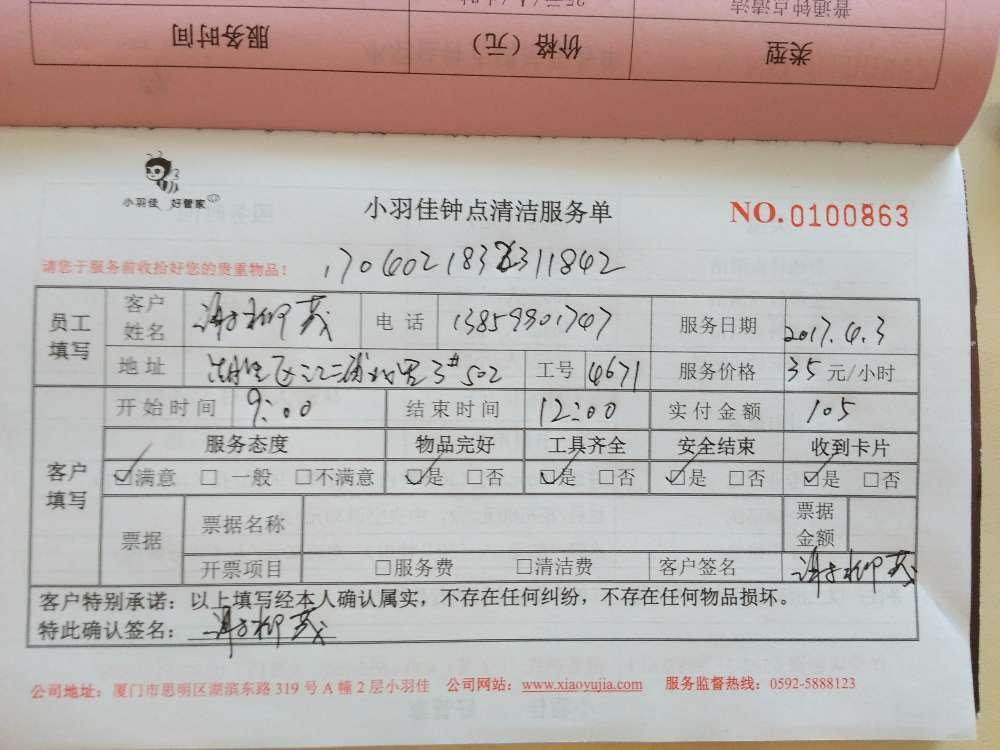 普通钟点清洁
类型 价格（元） 服务时间
小羽佳 好管家
小羽佳钟点清洁服务单
NO.0100863
请您于服务前收拾好您的贵重物品！
员工填写
客户姓名 电话 13859901747 服务日期 2017.4.3
地址 3# 502 工号 4671 服务价格 35 元/小时
客户填写
开始时间 9:00 结束时间 12:00 实付金额 105
服务态度 物品完好 工具齐全 安全结束 收到卡片
☑满意 □一般 □不满意 ☑是 □否 ☑是 □否 ☑是 □否 ☑是 □否
票据 票据名称 票据金额
开票项目 □服务费 □清洁费 客户签名
客户特别承诺：以上填写经本人确认属实，不存在任何纠纷，不存在任何物品损坏。
特此确认签名：
公司地址：厦门市思明区湖滨东路 319 号 A 幢 2 层小羽佳 公司网站：www.xiaoyujia.com 服务监督热线：0592-5888123